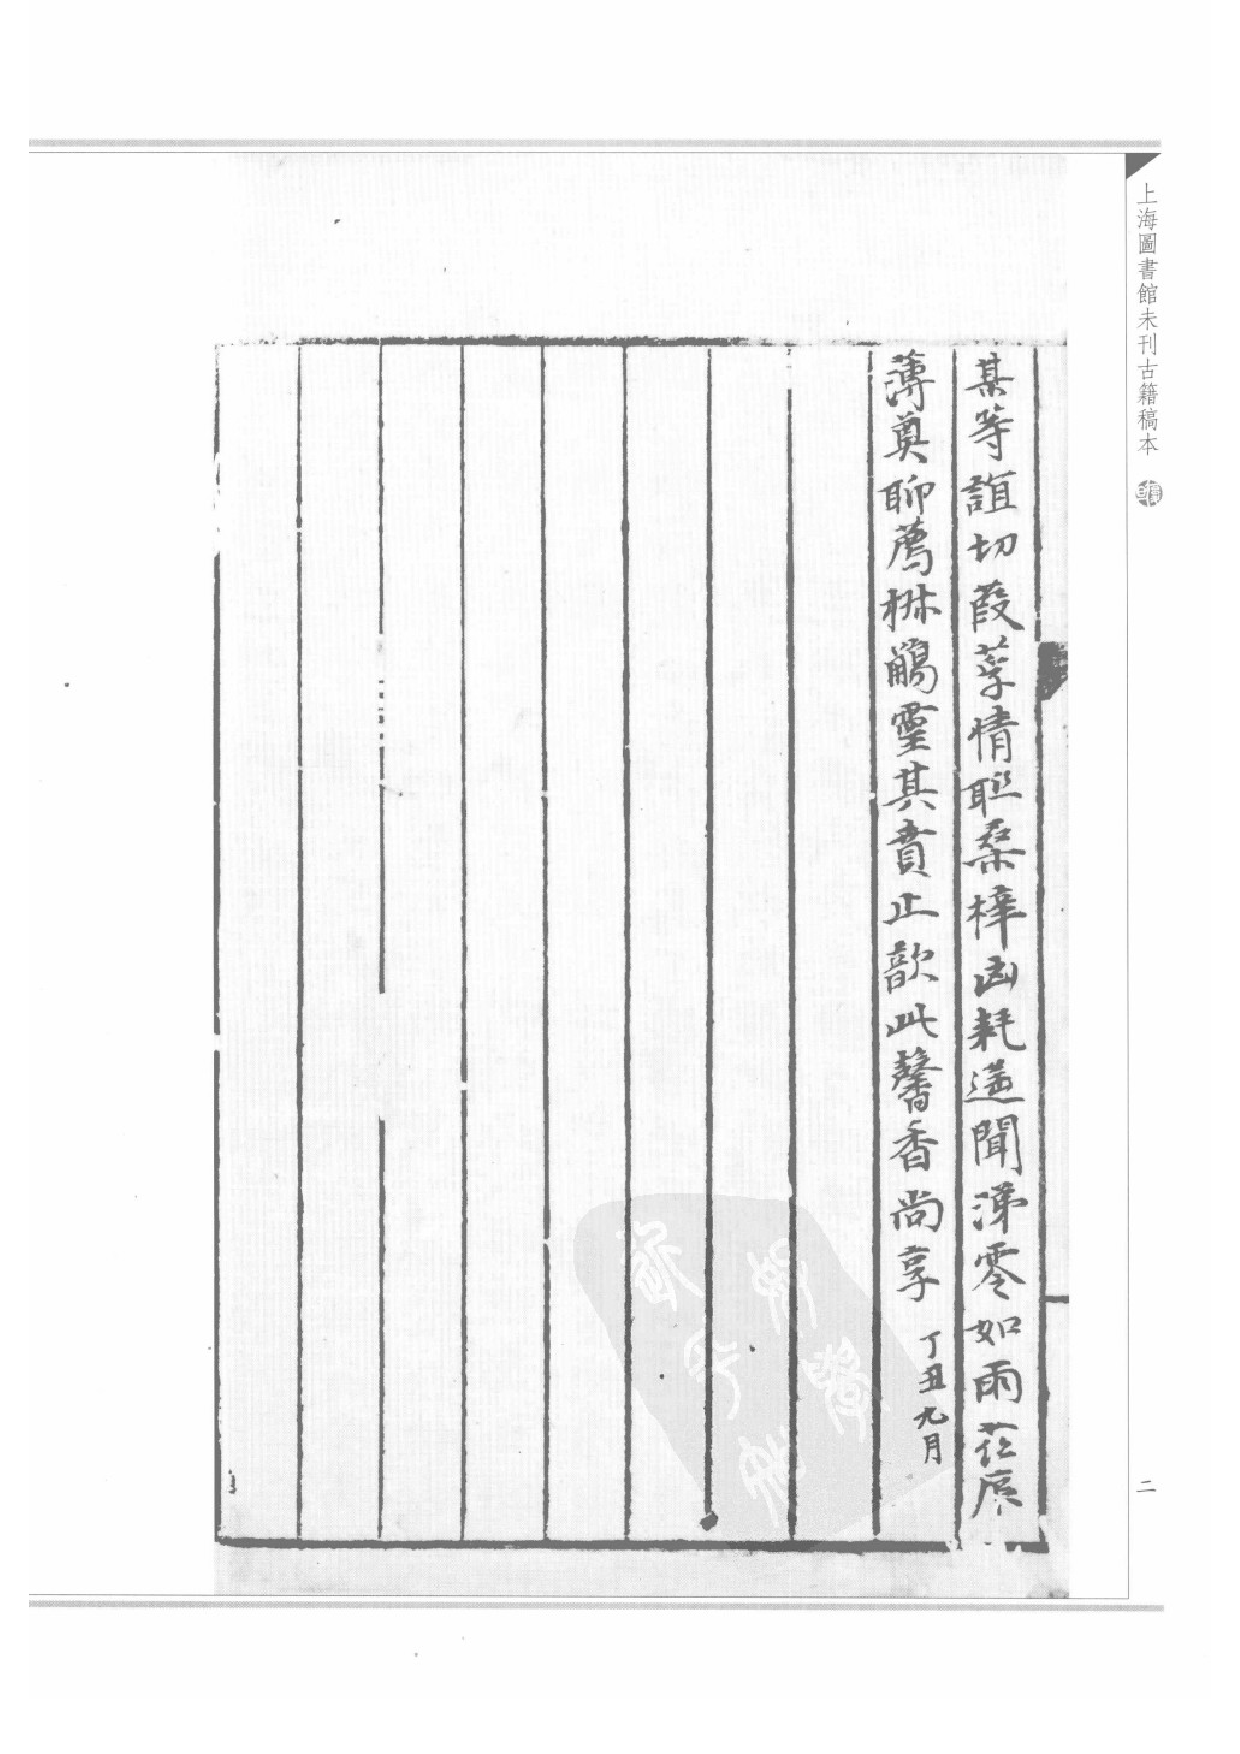 上海圖書館未刊古籍稿本
某等誼切葭莩情聯桑梓凶耗遥聞涕零如雨茫
薄奠聊薦椒觴靈其賁止歆此馨香尚享 丁丑九月
二